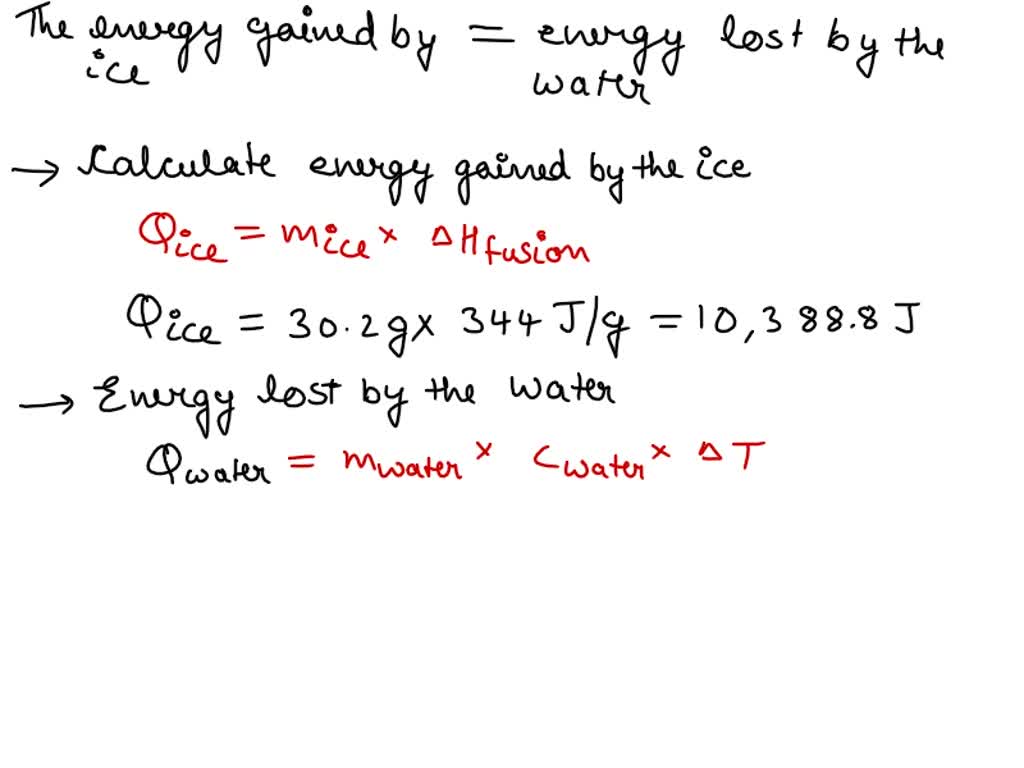 The energy gained by = energy lost by the
ice water
→ Calculate energy gained by the ice
Qice = mice × ΔHfusion
Qice = 30.2g× 344 J/g = 10,388.8 J
→ Energy lost by the water
Qwater = mwater × Cwater × ΔT